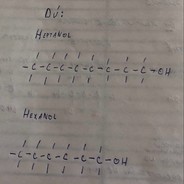 DÚ:
HEPTANOL
-C-C-C-C-C-C-C-C-OH
HEXANOL
-C-C-C-C-C-C-OH